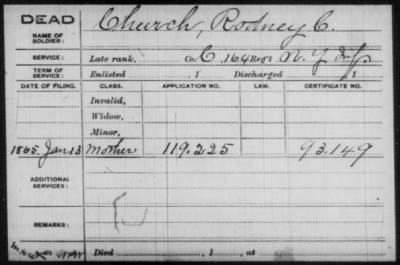 DEAD
Church, Rodney C.
NAME OF SOLDIER:
SERVICE: Late rank, Co. C, 164 Reg't N. Y. Inf.
TERM OF SERVICE: Enlisted , 1 Discharged , 1
DATE OF FILING. CLASS. APPLICATION NO. LAW. CERTIFICATE NO.
Invalid,
Widow,
Minor,
1865, Jan. 13 Mother 119.225 93.149
ADDITIONAL SERVICES:
REMARKS:
Died , 1 , at